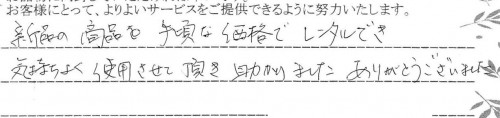 お客様にとって、よりよいサービスをご提供できるように努力いたします。
新品の商品を手頃な価格でレンタルでき
気持ちよく使用させて頂き助かりました ありがとうございました